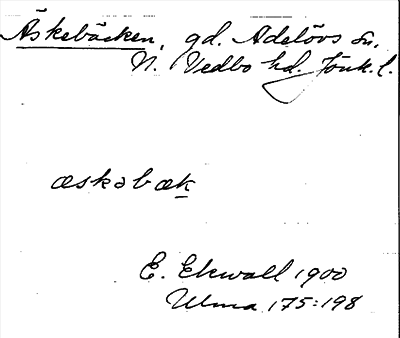 Äskebäcken, gd. Adelövs sn.
N. Vedbo hd. Jönk. l.
æskəbæk
E. Ekwall 1900
Ulma 175:198